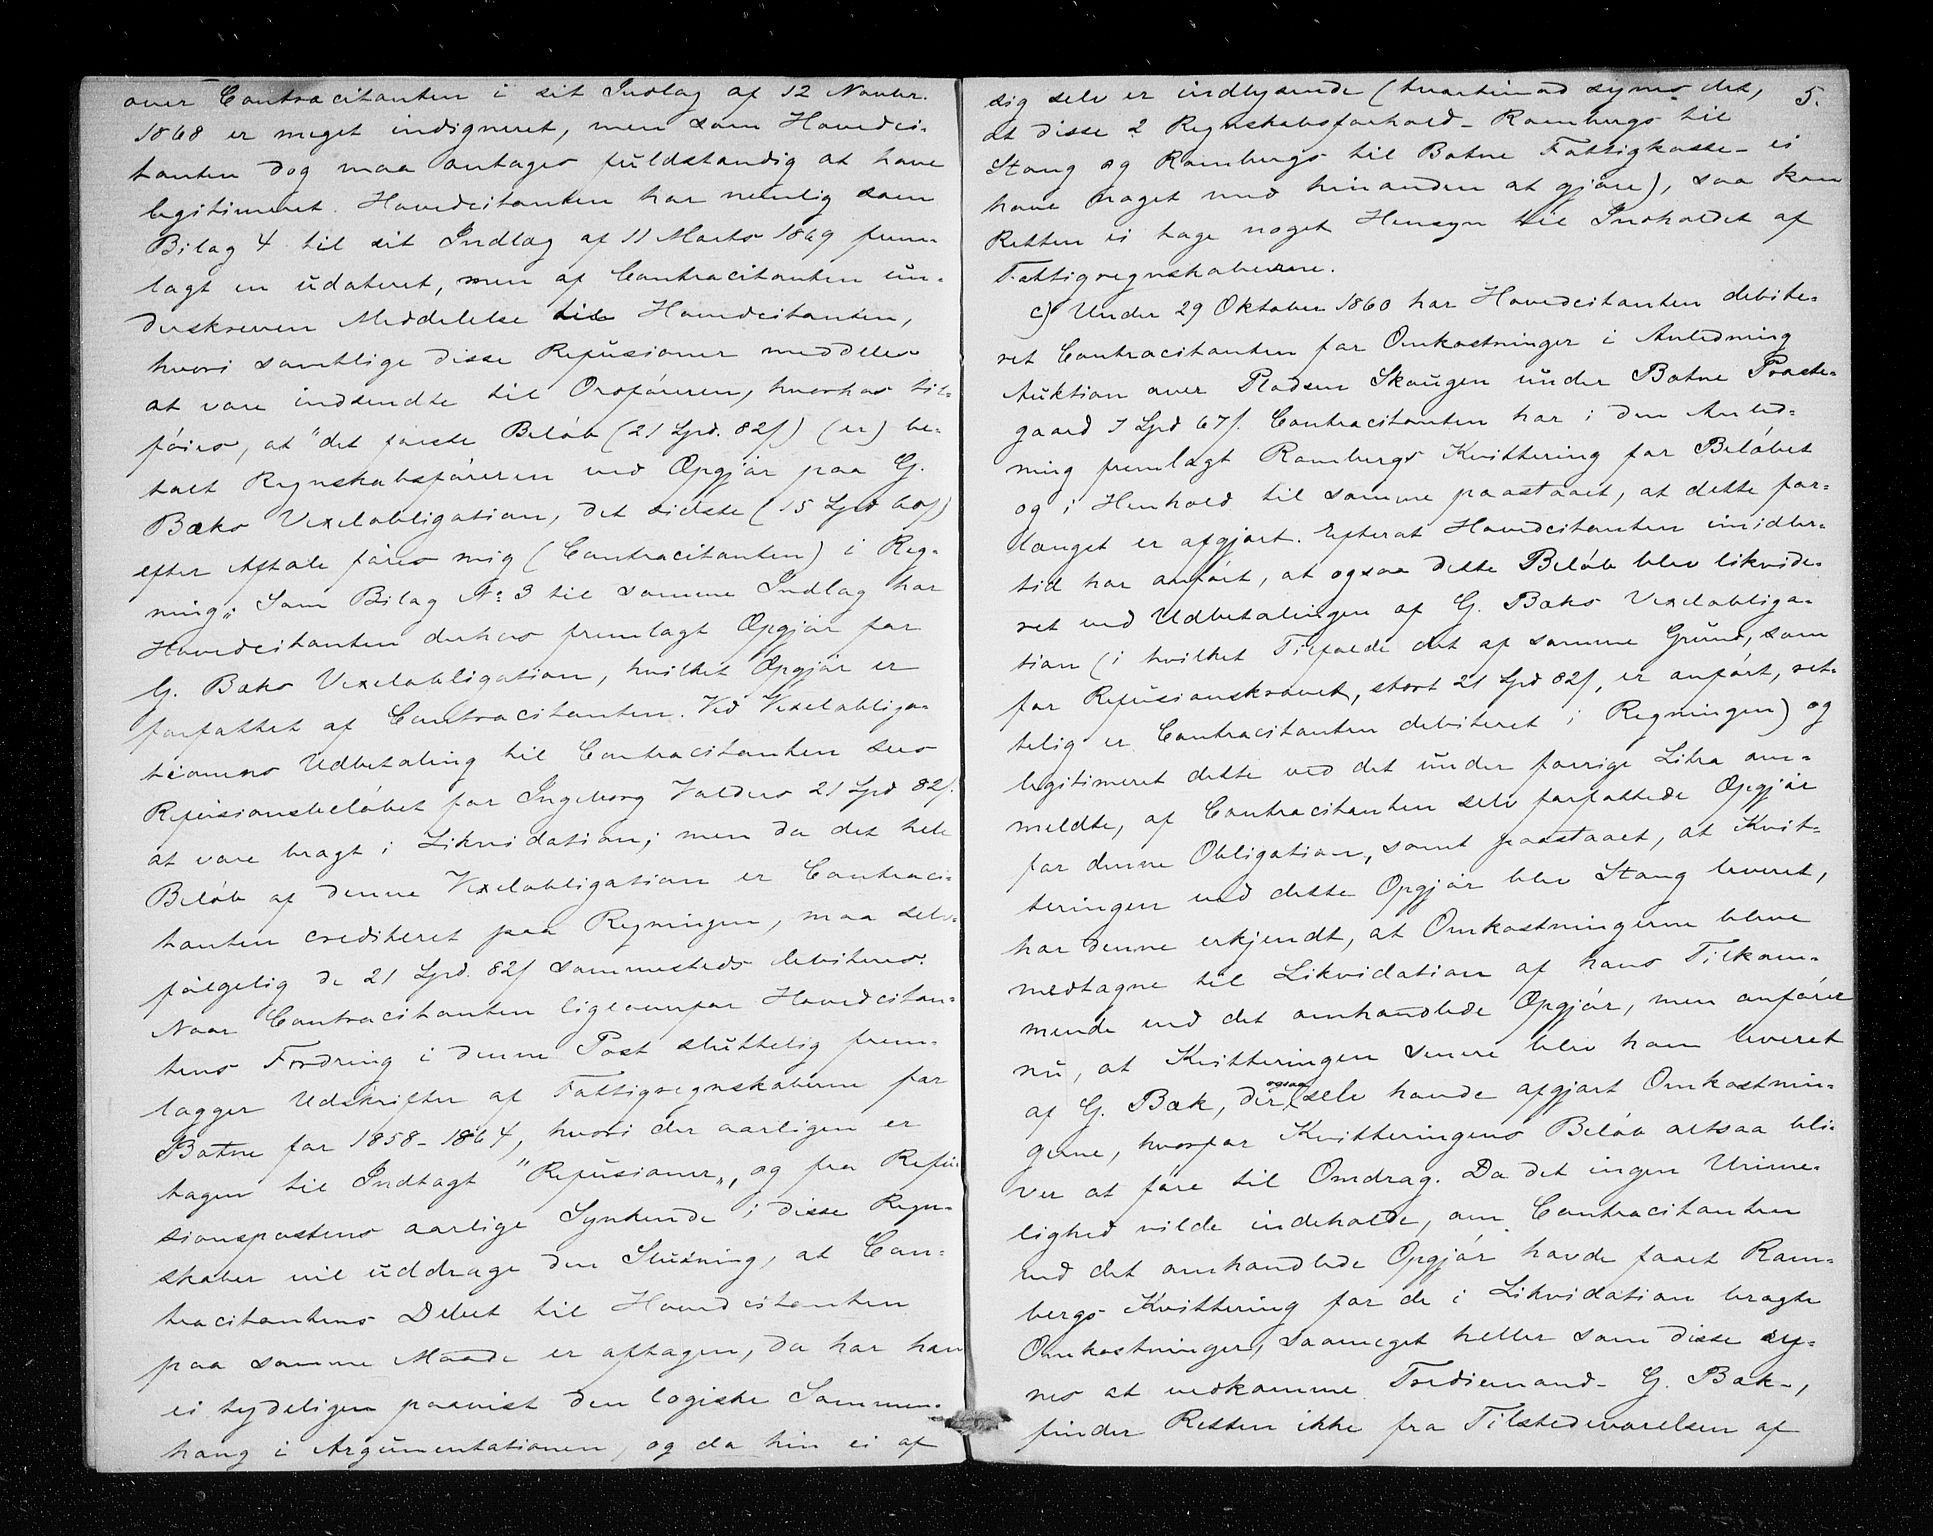 over Contracitanten i sit Indlæg af 12 Novbr.
1868 er meget indigneret, men som Hovedci-
tanten dog maa antages fuldstændig at have
legitimeret. Hovedcitanten har nemlig som
Bilag 4 til sit Indlæg af 11 Marts 1869 frem-
lagt en udateret, men af Contracitanten un-
derskreven Meddelelse til Hovedcitanten,
hvori samtlige disse Refusioner meddeles
at være indsendte til Ordføreren, hvorhos til-
føies, at "det første Beløb (21 Spd. 82 ß) (er) be-
talt Regnskabsføreren ved Opgjør paa G.
Bæks Vexelobligation, det sidste (15 Spd 60 ß)
efter Aftale føres mig (Contracitanten) i Reg-
ning„. Som Bilag No 3 til samme Indlæg har
Hovedcitanten derhos fremlagt Opgjør for
G. Bæks Vexelobligation, hvilket Opgjør er
forfattet af Contracitanten. Ved Vexelobliga-
tionens Udbetaling til Contracitanten sees
Refusionsbeløbet for Ingeborg Valders 21 Spd 82 ß.
at være bragt i Likvidation; men da det hele
Beløb af denne Vexelobligation er Contraci-
tanten crediteret paa Regningen, maa selv-
følgelig de 21 Spd. 82 ß sammesteds debiteres.
Naar Contracitanten ligeoverfor Hovedcitan-
tens Fordring i denne Post sluttelig frem-
lægger Udskrifter af Fattigregnskaberne for
Botne for 1858-1864, hvori der aarligen er
tagen til Indtægt "Refusioner„, og fra Refu-
sionspostens aarlige Synkende i disse Regn-
skaber vil uddrage den Slutning, at Con-
tracitantens Debet til Hovedcitanten
paa samme Maade er aftagen, da har han
ei tydeligen paavist den logiske Sammen-
hæng i Argumentationen, og da hin ei af
5.
sig selv er indlysende (tvertimod synes det,
at disse 2 Regnskabsforhold - Rambergs til
Stang og Rambergs til Botne Fattigkasse - ei
have noget med hinanden at gjøre), saa kan
Retten ei tage noget Hensyn til Indholdet af
Fattigregnskaberne.
c) Under 29 Oktober 1860 har Hovedcitanten debite-
ret Contracitanten for Omkostninger i Anledning
Auktion over Pladsen Skaugen under Botne Præste-
gaard 7 Spd 67 ß. Contracitanten har i den Anled-
ning fremlagt Rambergs Kvittering for Beløbet
og i Henhold til samme paastaaet, at dette for-
længst er afgjort. Efterat Hovedcitanten imidler-
tid har anført, at ogsaa dette Beløb blev likvide-
ret ved Udbetalingen af G. Bæks Vexelobliga-
tion (i hvilket Tilfælde det af samme Grund, som
for Refusionskravet, stort 21 Spd 82 ß, er anført, ret-
telig er Contracitanten debiteret i Regningen) og
legitimeret dette ved det under forrige Litra om-
meldte, af Contracitanten selv forfattede Opgjør
for denne Obligation, samt paastaaet, at Kvit-
teringen ved dette Opgjør blev Stang leveret,
har denne erkjendt, at Omkostningerne bleve
medtagne til Likvidation af hans Tilkom-
mende ved det omhandlede Opgjør, men anfører
nu, at Kvitteringen senere blev ham leveret
af G. Bæk, der ogsaa selv havde afgjort Omkostnin-
gerne, hvorfor Kvitteringens Beløb altsaa bli-
ver at føre til Omdrag. Da det ingen Urime-
lighed vilde indeholde, om Contracitanten
ved det omhandlede Opgjør havde faaet Ram-
bergs Kvittering for de i Likvidation bragte
Omkostninger, saameget heller som disse sy-
nes at vedkomme Trediemand - G. Bæk -,
finder Retten ikke fra Tilstedeværelsen af